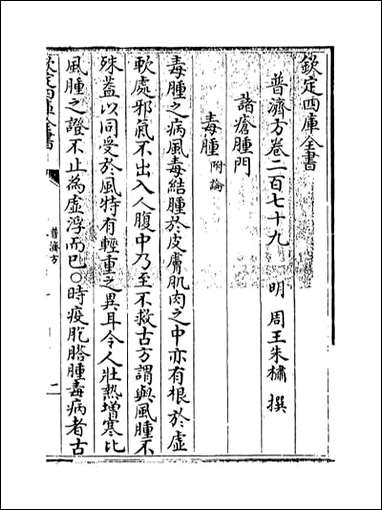 欽定四庫全書
普濟方卷二百七十九
明 周王朱橚 撰
諸瘡腫門
毒腫附論
毒腫之病風毒結腫於皮膚肌肉之中亦有根於虛
軟處邪氣不出入人腹中乃至不救古方謂與風腫不
殊蓋以同受於風特有輕重之異耳令人壯熱增寒比
風腫之證不止為虛浮而已○時疫肐㿓腫毒病者古
欽定四庫全書
普濟方